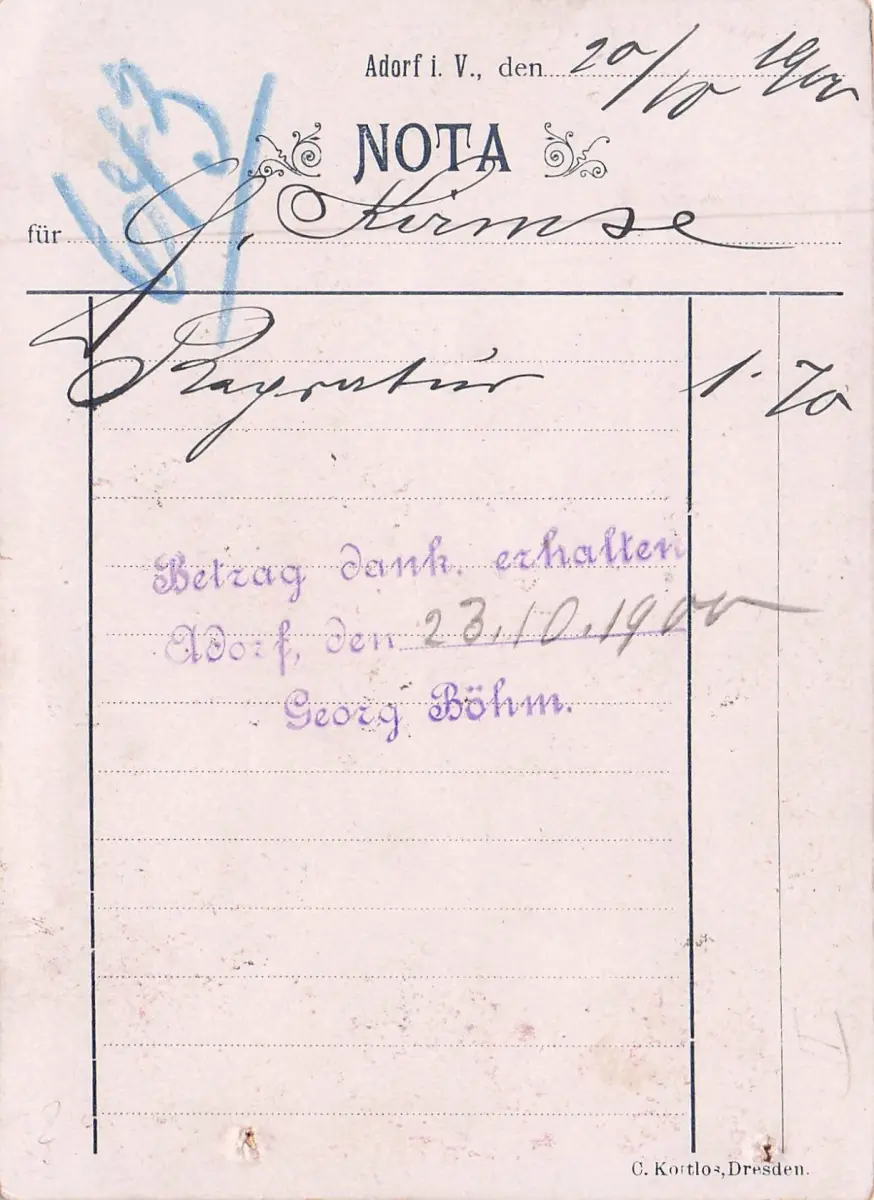 Adorf i. V., den 20/10 1900
NOTA
für J. Kirmse
Rapratur 1. 70
Betrag dank. erhalten
Adorf, den 23.10.1900
Georg Böhm.
C. Kortlos, Dresden.